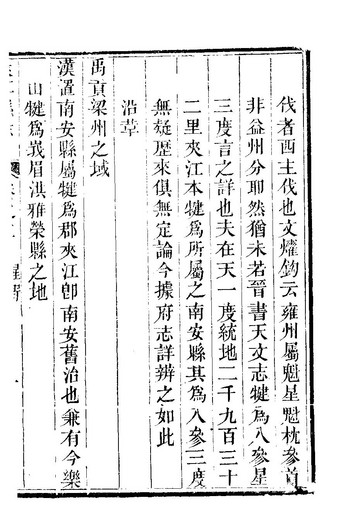 伐者西主伐也文燿鉤云雍州屬魁星魁枕參首
非益州分耶然猶未若晉書天文志犍為入參星
三度言之詳也夫在天一度統地二千九百三十
二里夾江本犍為所屬之南安縣其為入參三度
無疑歷來俱無定論今據府志詳辨之如此
沿革
禹貢梁州之域
漢置南安縣屬犍為郡夾江卽南安舊治也兼有今樂
山犍為峩眉洪雅榮縣之地